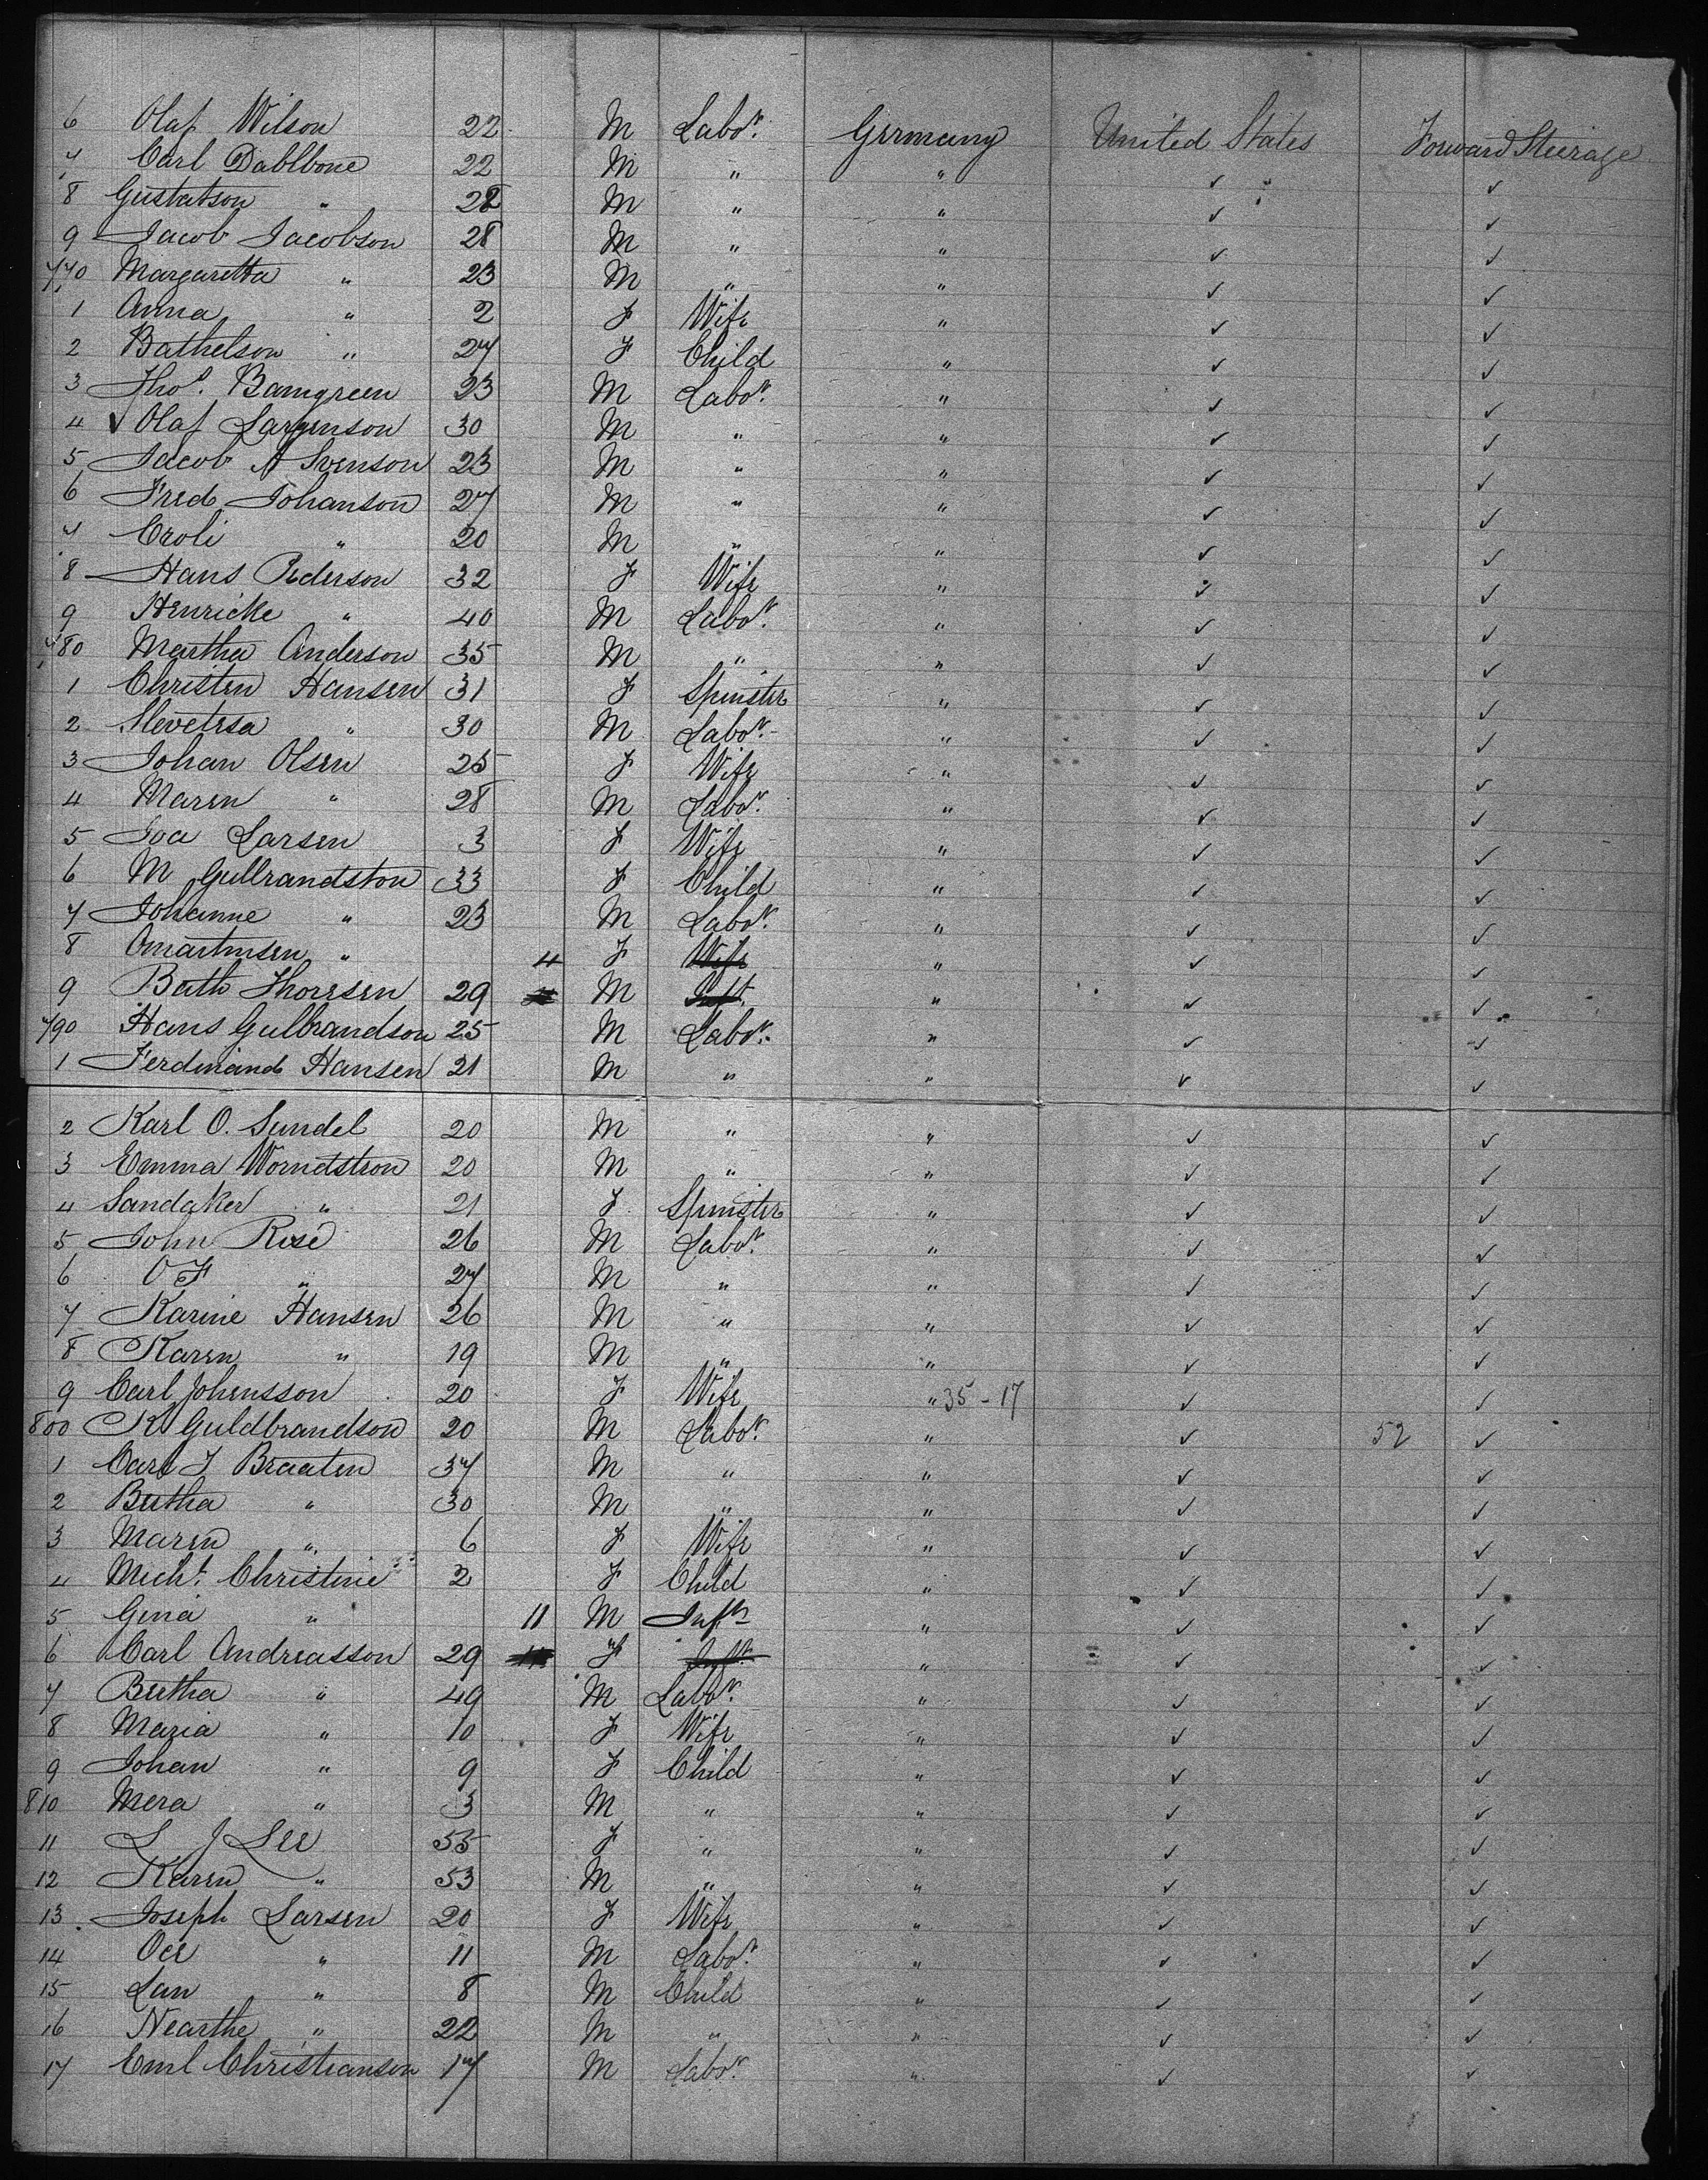 6 Olaf Wilson 22 M Labor. Germany United States Forward Steerage
7 Carl Dablbone 22 M " " ✓ ✓
8 Gustatson " 28 M " " ✓ ✓
9 Jacob Jacobson 28 M " " ✓ ✓
770 Margaretta " 23 M " " ✓ ✓
1 Anna " 2 F Wife " ✓ ✓
2 Bathelson " 27 F Child " ✓ ✓
3 Thos. Bamgreen 23 M Labor. " ✓ ✓
4 ✓ Olaf Largenson 30 M " " ✓ ✓
5 Jacob A Svenson 23 M " " ✓ ✓
6 Fred Johanson 27 M " " ✓ ✓
7 Croli " 20 M " " ✓ ✓
8 Hans Pederson 32 F Wife " ✓ ✓
9 Henricke " 40 M Labor. " ✓ ✓
780 Martha Anderson 35 M " " ✓ ✓
1 Christen Hansen 31 F Spinster " ✓ ✓
2 " 30 M Labor. " ✓ ✓
3 Johan Olsen 25 F Wife " ✓ ✓
4 Maren " 28 M Labor. " ✓ ✓
5 Larsen 3 F Wife " ✓ ✓
6 M Gullrandston 33 F Child " ✓ ✓
7 Johanne " 23 M Labor. " ✓ ✓
8 Omartinsen " 11 F Wife " ✓ ✓
9 Bath Thoresen 29 M Inft. " ✓ ✓
790 Hans Gulbrandson 25 M Labor. " ✓ ✓
1 Ferdinand Hansen 21 M " " ✓ ✓
2 Karl O. Sundel 20 M " " ✓ ✓
3 Emma Worndstron 20 M " " ✓ ✓
4 Sandaker " 21 F Spinster " ✓ ✓
5 John Rose 26 M Labor. " ✓ ✓
6 O F " 27 M " " ✓ ✓
7 Karine Hansen 26 M " " ✓ ✓
8 Karen " 19 M " " ✓ ✓
9 Carl Johensson 20 F Wife " 35-17 ✓ ✓
800 K Guldbrandson 20 M Labor. " ✓ 52 ✓
1 Carl J Braaten 37 M " " ✓ ✓
2 Bertha " 30 M " " ✓ ✓
3 Maren " 6 F Wife " ✓ ✓
4 Michl. Christine 2 F Child " ✓ ✓
5 Gina " 11 M Inft " ✓ ✓
6 Carl Andreasson 29 11 F Inft. " ✓ ✓
7 Bertha " 49 M Labor. " ✓ ✓
8 Maria " 10 F Wife " ✓ ✓
9 Johan " 9 F Child " ✓ ✓
810 Mera " 3 M " " ✓ ✓
11 L J Lee 55 F " " ✓ ✓
12 Karen " 53 M " " ✓ ✓
13 Joseph Larsen 20 F Wife " ✓ ✓
14 Oce " 11 M Labor. " ✓ ✓
15 Lan " 8 M Child " ✓ ✓
16 Nearthe " 22 M " " ✓ ✓
17 Eml Christianson 17 M Labor. " ✓ ✓